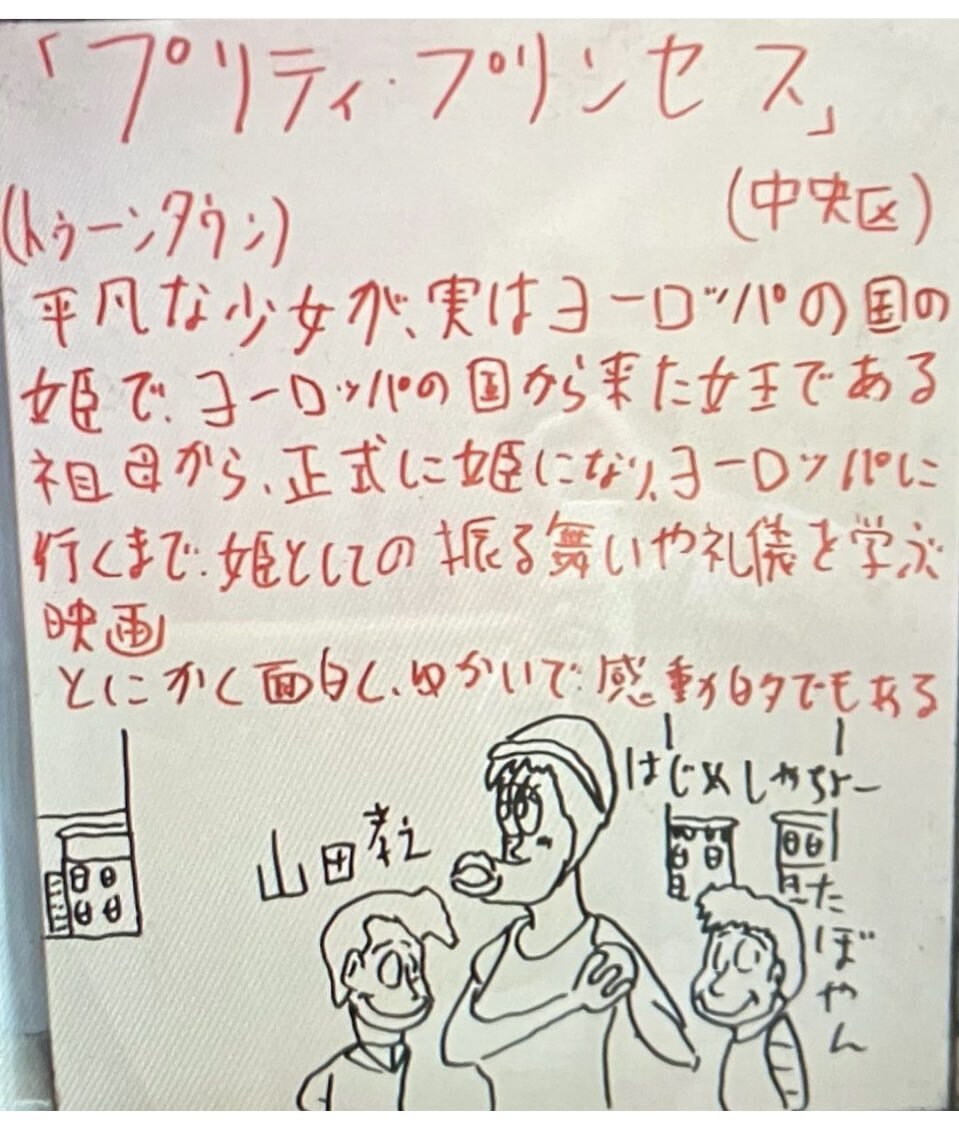 「プリティ・プリンセス」
(トゥーンタウン) (中央区)
平凡な少女が、実はヨーロッパの国の
姫で、ヨーロッパの国から来た女王である
祖母から、正式に姫になり、ヨーロッパに
行くまで、姫としての振る舞いや礼儀を学ぶ
映画
とにかく面白く、ゆかいで、感動的でもある
はじめしゃちょー
山田孝之
たぼやん